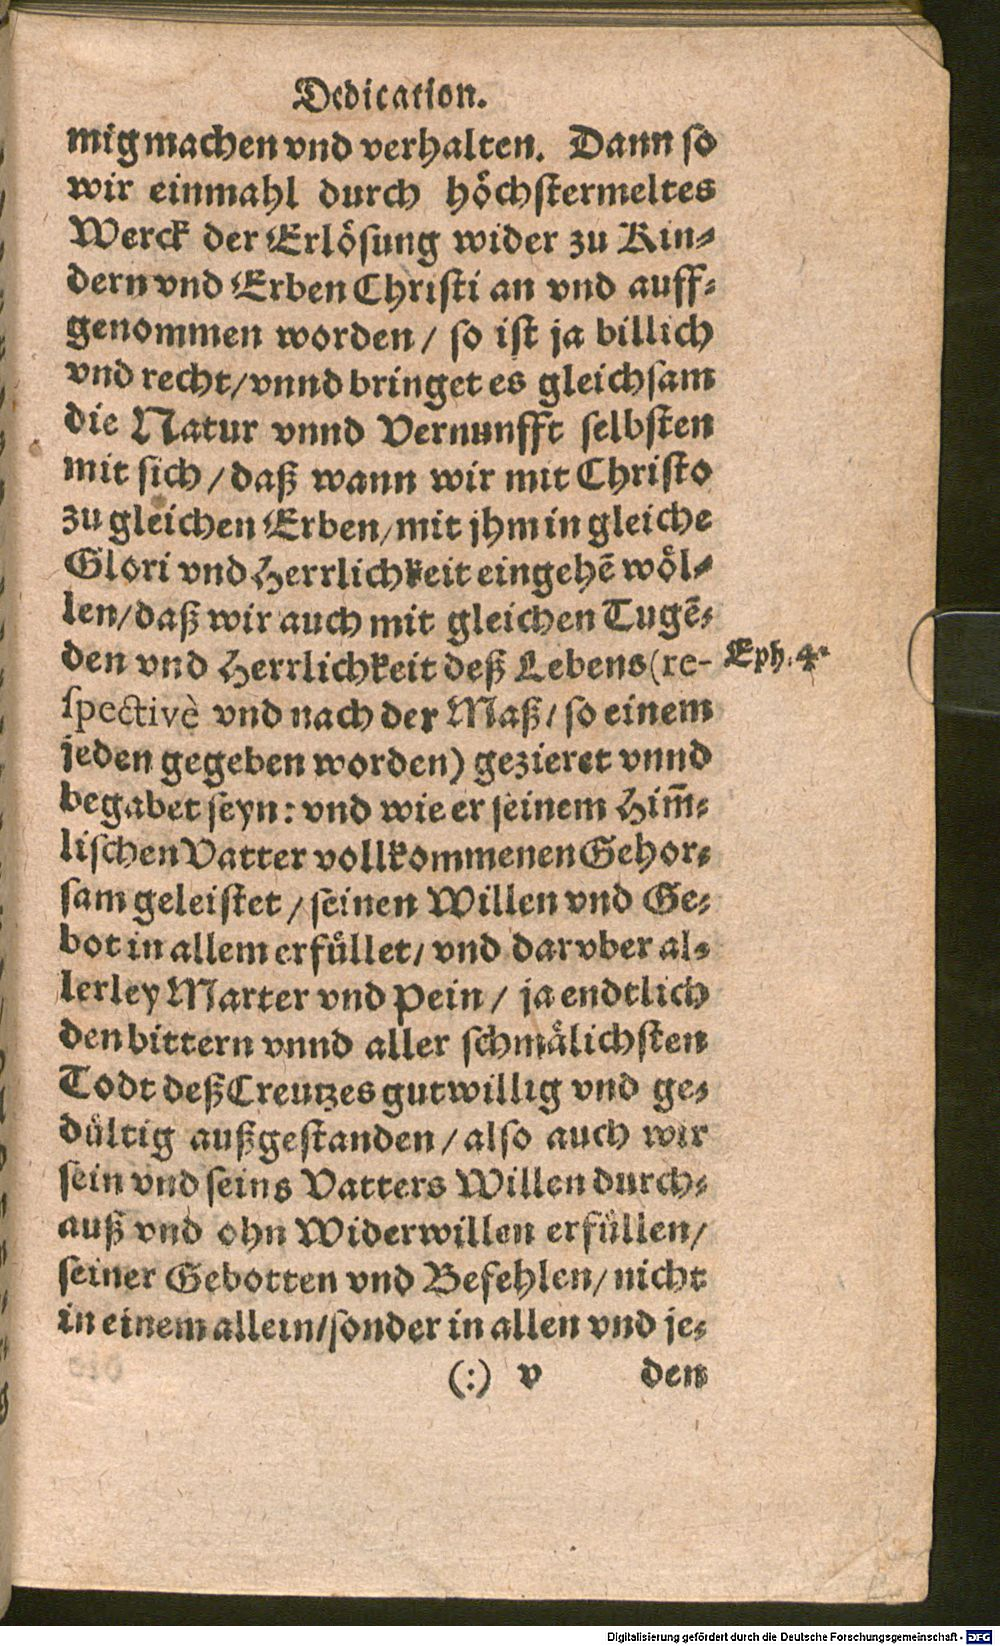 Dedication.
mig machen vnd verhalten. Dann so
wir einmahl durch höchstermeltes
Werck der Erlösung wider zu Kin-
dern vnd Erben Christi an vnd auff-
genommen worden / so ist ja billich
vnd recht / vnnd bringet es gleichsam
die Natur vnnd Vernunfft selbsten
mit sich / daß wann wir mit Christo
zu gleichen Erben / mit jhm in gleiche
Glori vnd Herrlichkeit eingehē wöl-
len / daß wir auch mit gleichen Tugē-
den vnd Herrlichkeit deß Lebens (re-
Eph. 4.
spectivè vnd nach der Maß / so einem
jeden gegeben worden) gezieret vnnd
begabet seyn: vnd wie er seinem Him̄-
lischen Vatter vollkommenen Gehor-
sam geleistet / seinen Willen vnd Ge-
bot in allem erfüllet / vnd darvber al-
lerley Marter vnd Pein / ja endtlich
den bittern vnnd aller schmälichsten
Todt deß Creutzes gutwillig vnd ge-
dültig außgestanden / also auch wir
sein vnd seins Vatters Willen durch-
auß vnd ohn Widerwillen erfüllen /
seiner Gebotten vnd Befehlen / nicht
in einem allein / sonder in allen vnd je-
(:) v den
Digitalisierung gefördert durch die Deutsche Forschungsgemeinschaft - DFG